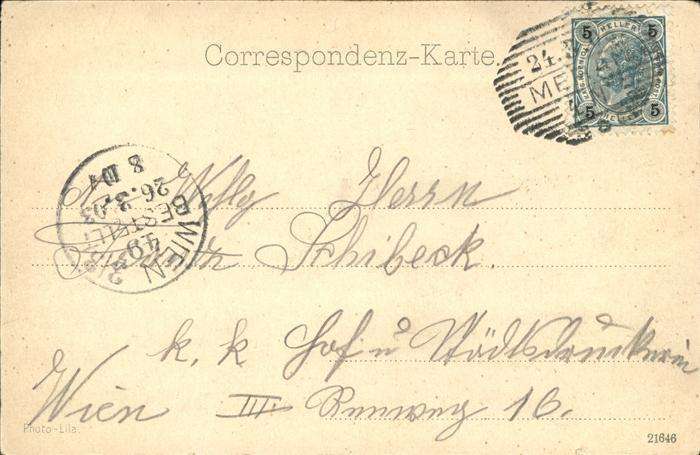 Correspondenz-Karte.
5 HELLER 5
5 5
24.3
ME
WIEN
49
BESTELLT
26.3.03
8
Wohlg Herrn
Schibeck.
k. k Hof u Städtsdruckerei
Wien III Rennweg 16.
Photo-Lila.
21646